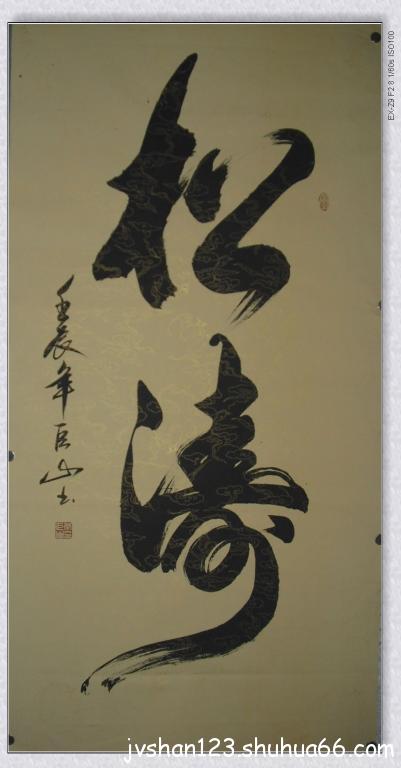 松濤
壬辰年巨山书
EX-Z9 F2.8 1/60s ISO100
jvshan123.shuhua66.com